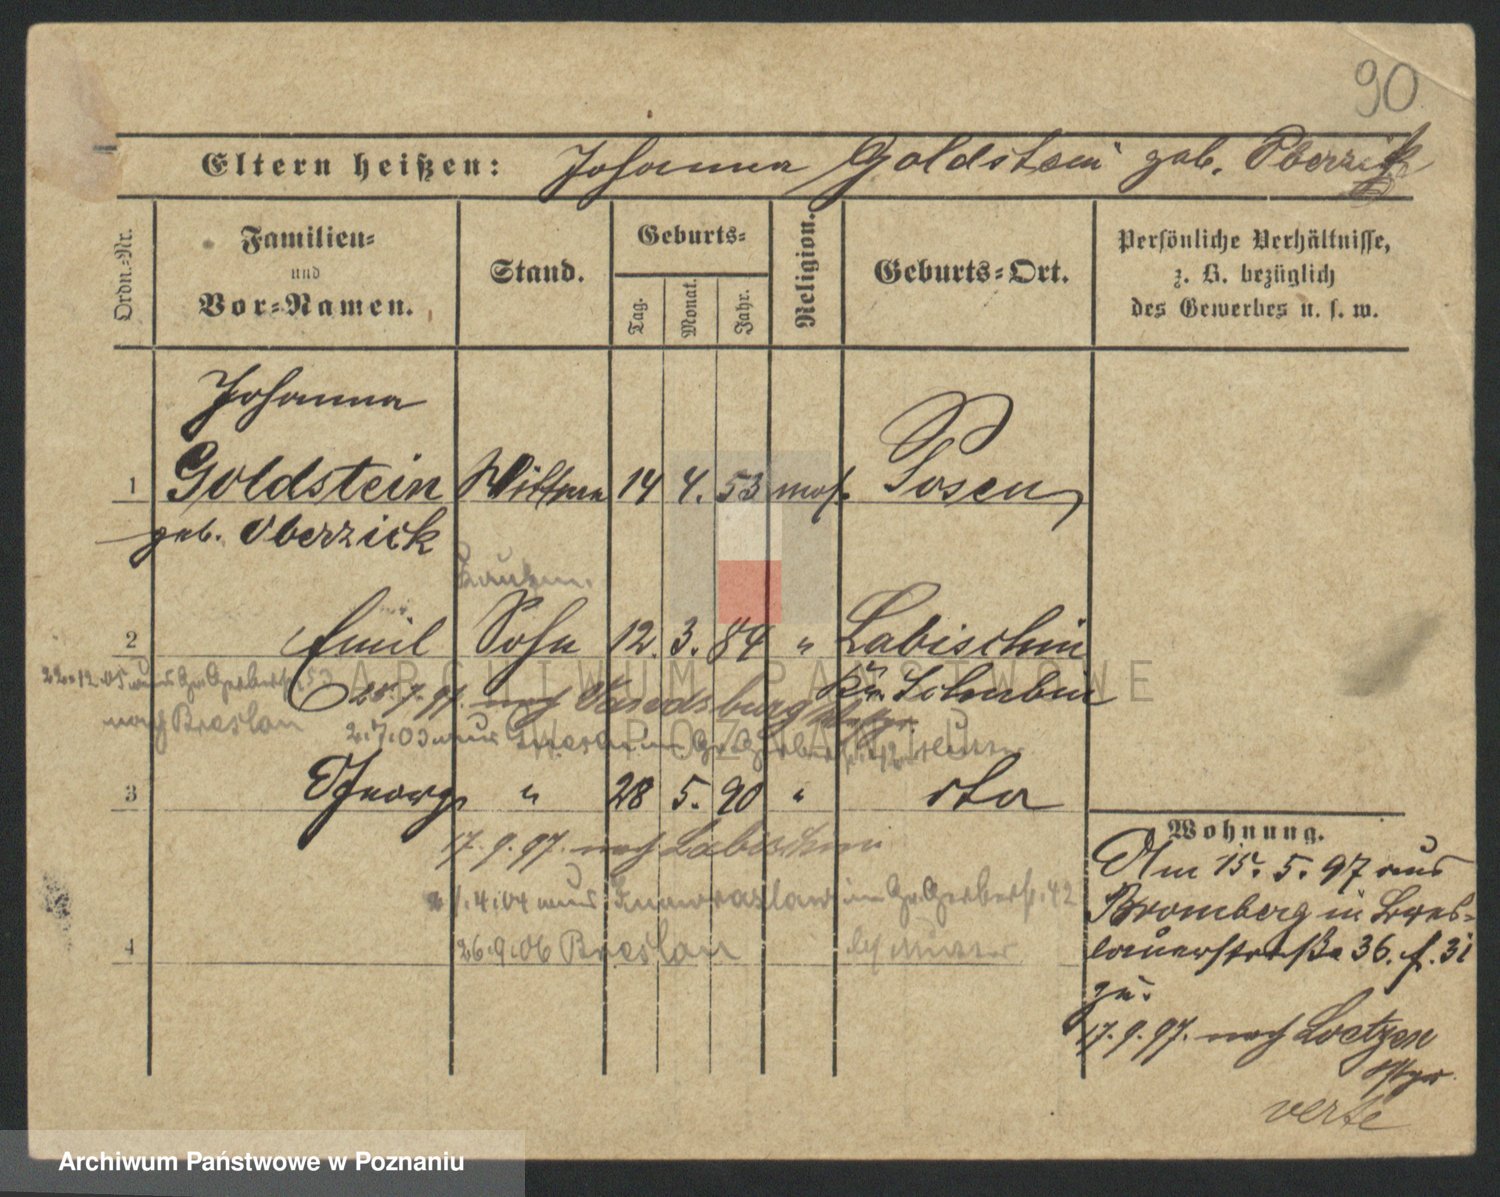 90
Eltern heißen: Johanna Goldstein geb. Oberzick
Ordn.-Nr.
Familien-
und
Vor-Namen.
Stand.
Geburts-
Tag.
Monat.
Jahr.
Religion.
Geburts-Ort.
Persönliche Verhältnisse,
z. B. bezüglich
des Gewerbes u. s. w.
Johanna
1 Goldstein Wittwe 14 4. 53 mos. Posen
geb. Oberzick
Kaufm.
2 Emil Sohn 12. 3. 84 " Labischin
Kr. Schubin
22.12.05 aus Gr. Gerberstr.
nach Breslau
25.9.97. nach
2.7.03 aus Gr. Gerberstr. 42
3 Georg " 28 5. 90 " dto
17.9.97. nach Labischin
21.4.04 aus Inowrazlaw in Gr. Gerberstr. 42
4 26.9.06 Breslau
b/ Mutter
Wohnung.
Am 15. 5. 97 aus
Bromberg in Bres-
lauerstraße 36. f. 31
zu.
17.9.97. nach Loetzen
Ostpr.
verte
ARCHIWUM PAŃSTWOWE
W POZNANIU
Archiwum Państwowe w Poznaniu